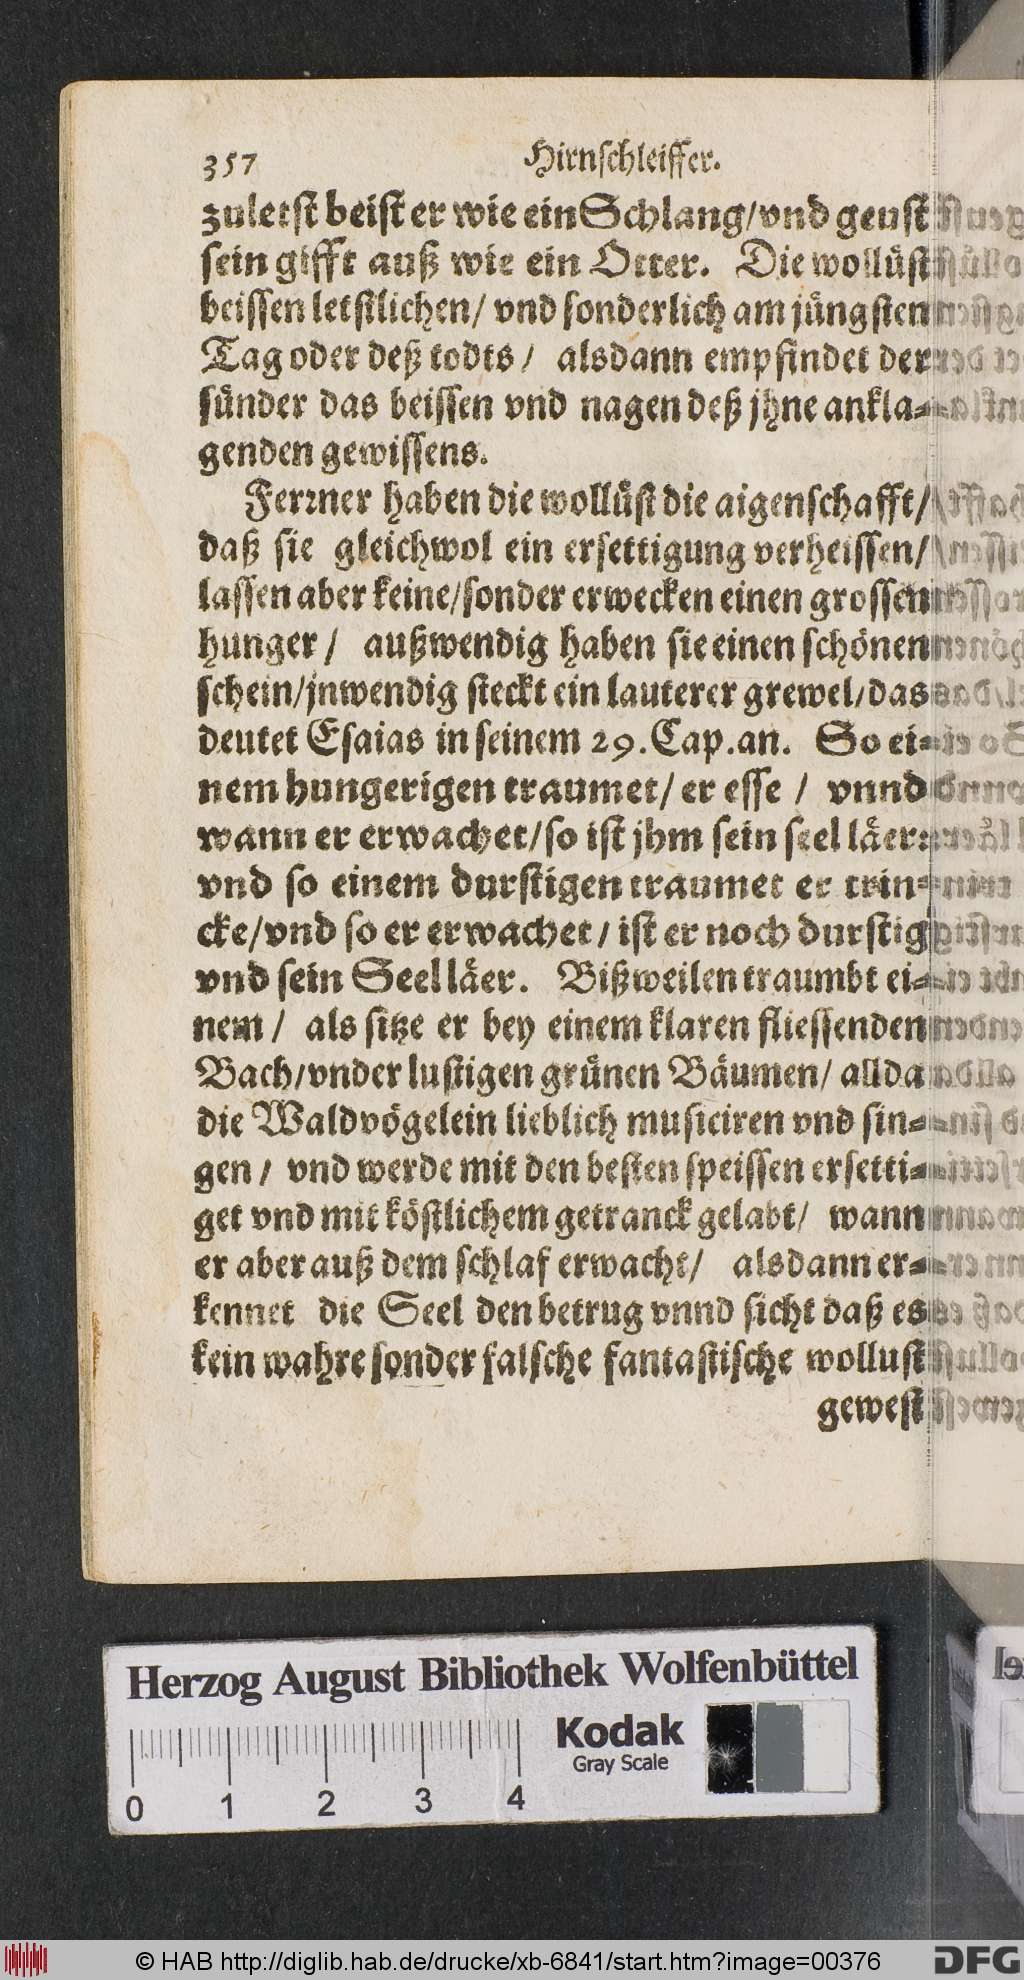 357 Hirnschleiffer.
zuletst beist er wie ein Schlang/vnd geust
sein gifft auß wie ein Otter. Die wollüst
beissen letstlichen/ vnd sonderlich am jüngsten
Tag oder deß todts/ alsdann empfindet der
sünder das beissen vnd nagen deß jhne ankla-
genden gewissens.
Ferrner haben die wollüst die aigenschafft/
daß sie gleichwol ein ersettigung verheissen/
lassen aber keine/sonder erwecken einen grossen
hunger/ außwendig haben sie einen schönen
schein/jnwendig steckt ein lauterer grewel/das
deutet Esaias in seinem 29. Cap. an. So ei-
nem hungerigen traumet/ er esse/ vnnd
wann er erwachet/so ist jhm sein seel läer:
vnd so einem durstigen traumet er trin-
cke/vnd so er erwachet/ ist er noch durstig
vnd sein Seel läer. Bißweilen traumbt ei-
nem/ als sitze er bey einem klaren fliessenden
Bach/vnder lustigen grünen Bäumen/ allda
die Waldvögelein lieblich musiciren vnd sin-
gen/ vnd werde mit den besten speissen ersetti-
get vnd mit köstlichem getranck gelabt/ wann
er aber auß dem schlaf erwacht/ alsdann er-
kennet die Seel den betrug vnnd sicht daß es
kein wahre sonder falsche fantastische wollust
gewest
Herzog August Bibliothek Wolfenbüttel
Kodak
Gray Scale
0 1 2 3 4
© HAB http://diglib.hab.de/drucke/xb-6841/start.htm?image=00376
DFG